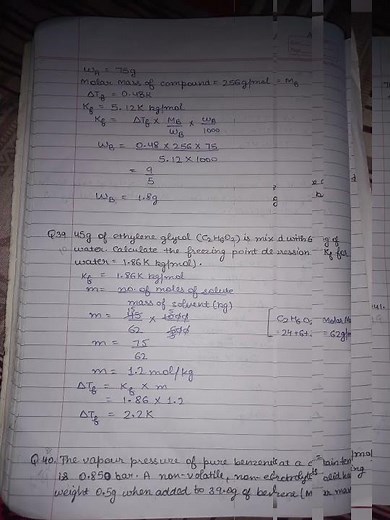 WA = 75g
Molar mass of compound = 256g/mol = MB
ΔTf = 0.48K
Kf = 5.12K kg/mol
Kf = ΔTf × MB/WB × WB/1000
WB = 0.48 × 256 × 75
5.12 × 1000
= 9
5
WB = 1.8g
Q39. 45g of ethylene glycol (C2H6O2) is mix d with 6 g of
water. Calculate the freezing point de ression Kf for
water = 1.86K kg/mol).
Kf = 1.86K kg/mol
m = no. of moles of solute
mass of solvent (kg)
m = 45 × 1000
62 600
[ C2H6O2 Molar Ma
= 24+6+ = 62g/m
m = 75
62
m = 1.2 mol/kg
ΔTf = Kf × m
= 1.86 × 1.2
ΔTf = 2.2K
Q40. The vapour pressure of pure benzene at a tain tem
is 0.850 bar. A non-volatile, non-electrolyte
weight 0.5g when added to 39.0g of benzene (M